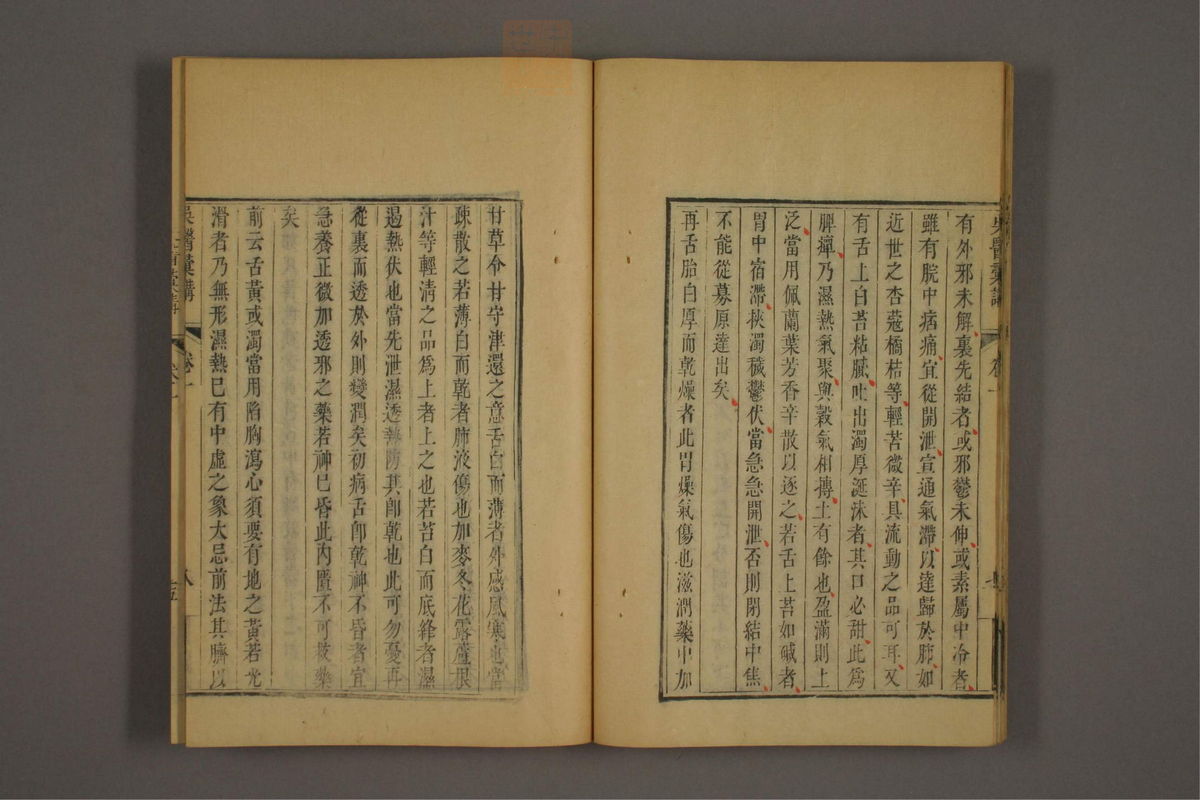 吳醫彙講
卷一
七
有外邪未解裏先結者或邪鬱未伸或素屬中冷者
雖有脘中痞痛宜從開泄宣通氣滯以達歸於肺如
近世之杏蔻橘桔等輕苦微辛具流動之品可耳又
有舌上白苔粘膩吐出濁厚涎沫者其口必甜此爲
脾癉乃濕熱氣聚與穀氣相摶土有餘也盈滿則上
泛當用佩蘭葉芳香辛散以逐之若舌上苔如碱者
胃中宿滯挾濁穢鬱伏當急急開泄否則閉結中焦
不能從募原達出矣
再舌胎白厚而乾燥者此胃燥氣傷也滋潤藥中加
甘草令甘守津還之意舌白而薄者外感風寒也當
疎散之若薄白而乾者肺液傷也加麥冬花露蘆根
汁等輕清之品爲上者上之也若苔白而底絳者濕
遏熱伏也當先泄濕透熱防其卽乾也此可勿憂再
從裏而透於外則變潤矣初病舌卽乾神不昏者宜
急養正微加透邪之藥若神已昏此內匱不可救藥
矣
前云舌黃或濁當用陷胸瀉心須要有地之黃若光
滑者乃無形濕熱已有中虛之象大忌前法其臍以
吳醫彙講
卷一
八